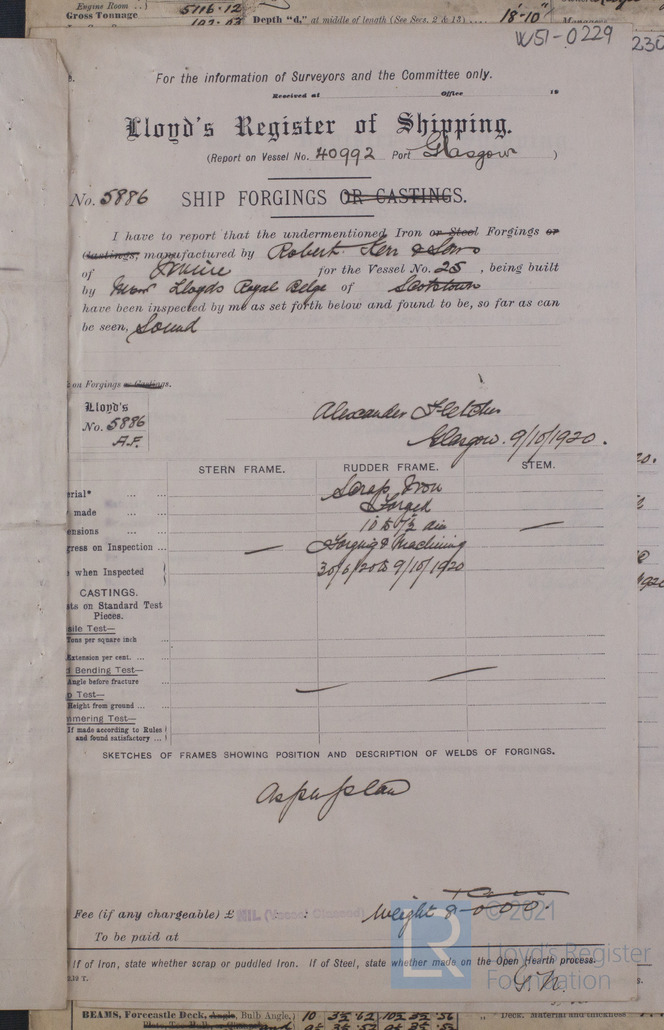 Engine Room
5116.12
Gross Tonnage
Depth "d," at middle of length (See Secs. 2 & 13) 18'-10"
W51-0229
230
For the information of Surveyors and the Committee only.
Received at Office 19
Lloyd's Register of Shipping.
(Report on Vessel No. 40992 Port Glasgow)
No. 5886 SHIP FORGINGS OR CASTINGS.
I have to report that the undermentioned Iron or Steel Forgings or
Castings, manufactured by Robert Kerr & Sons
of Irvine for the Vessel No. 25, being built
by Messrs Lloyds Royal Belge of Scotstoun
have been inspected by me as set forth below and found to be, so far as can
be seen, Sound
on Forgings or Castings.
Lloyd's
No. 5886
A.F.
Alexander Fletcher
Glasgow. 9/10/1920.
STERN FRAME. RUDDER FRAME. STEM.
erial* Scrap Iron
made Forged
ensions 10 to 7½ dia —
gress on Inspection — Forging & Machining
when Inspected 30/6/20 to 9/10/1920
CASTINGS.
ts on Standard Test
Pieces.
sile Test—
Tons per square inch
Extension per cent.
d Bending Test—
Angle before fracture
p Test—
Height from ground
mmering Test—
If made according to Rules
and found satisfactory
SKETCHES OF FRAMES SHOWING POSITION AND DESCRIPTION OF WELDS OF FORGINGS.
As per plan
Fee (if any chargeable) £ NIL (Vessel Classed) :
Weight 8-0-0-0.
To be paid at
If of Iron, state whether scrap or puddled Iron. If of Steel, state whether made on the Open Hearth process.
© 2021
LR
Lloyd's Register
Foundation
BEAMS, Forecastle Deck, Angle, Bulb Angle,